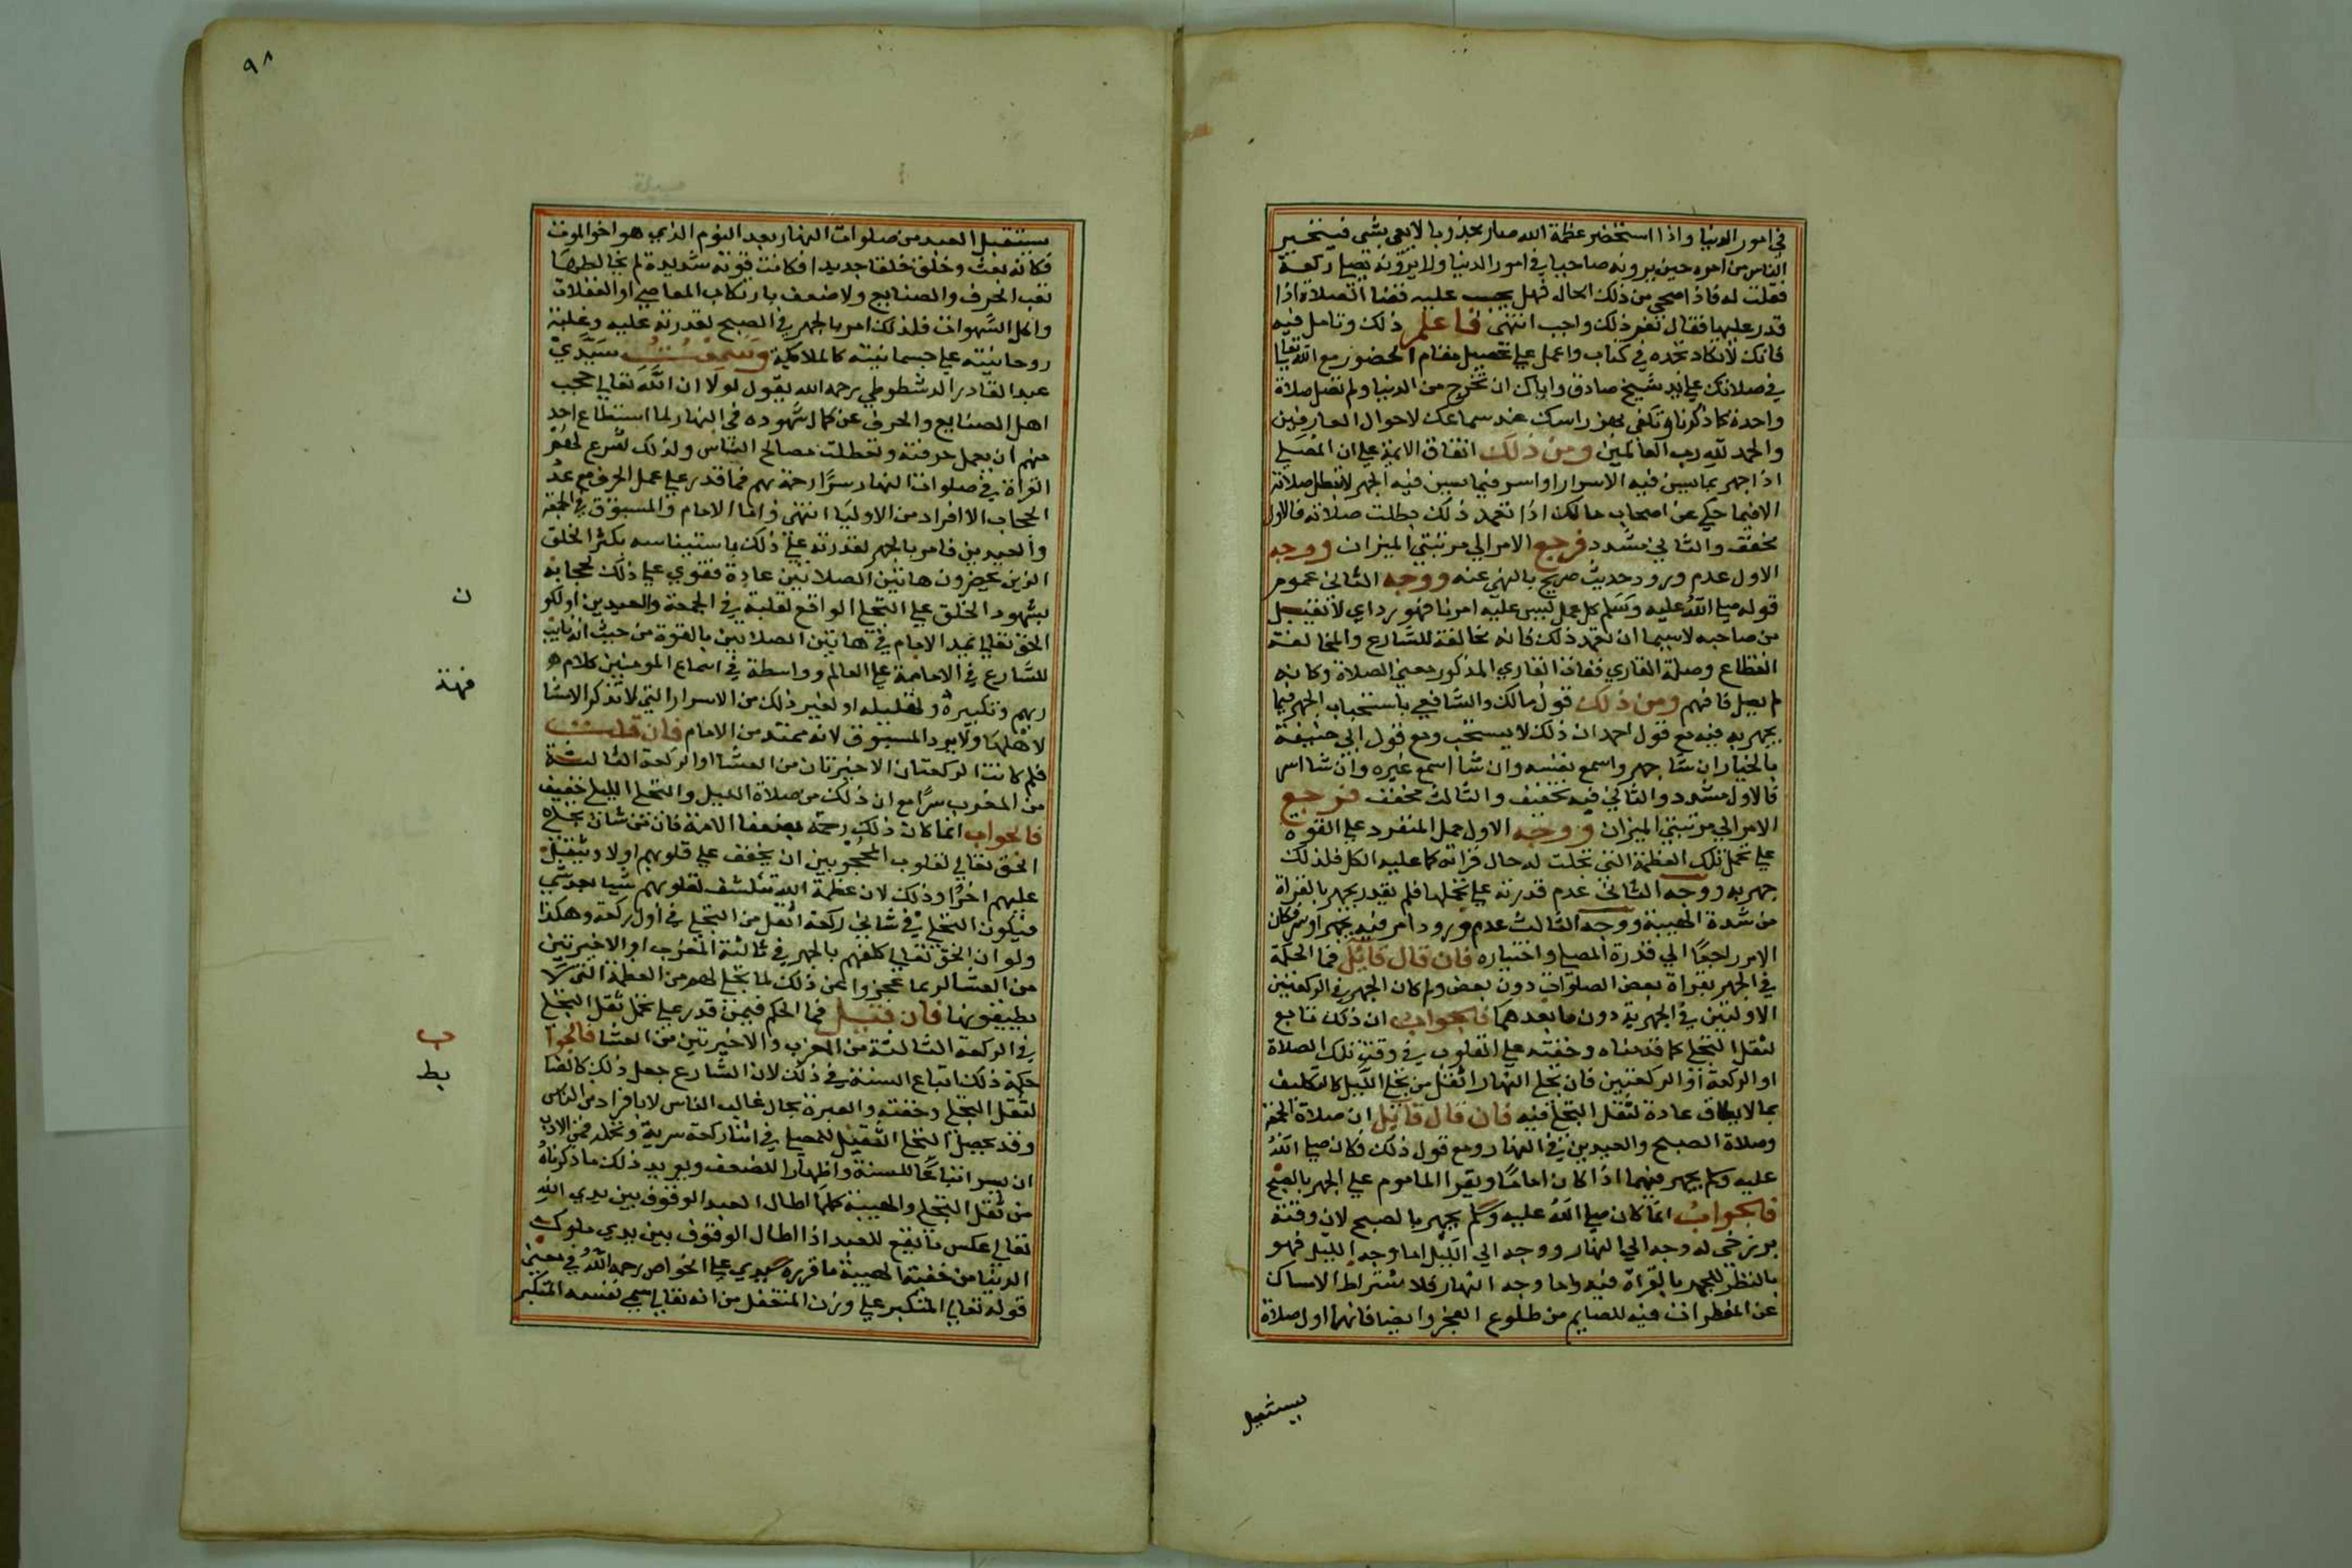 في امور الدنيا واذا استحضر عظمة الله صار مجذوبا لايعي بشي فيتحير
الناس من امره حين يرونه صاحيا في امور الدنيا ولا يرونه يصلي ركعة
فقلت له فاذا صحي من ذلك الحال فهل يجب عليه قضا الصلاة اذا
قدر عليها فقال نعم ذلك واجب انتهى فاعلم ذلك وتامل فيه
فانك لا تكاد تجده في كتاب واعمل على تحصيل مقام الحضور مع الله تعالى
في صلاتك على يد شيخ صادق واياك ان تخرج من الدنيا ولم تصل صلاة
واحدة كما ذكرنا وتكتفي بهز راسك عند سماعك لاحوال العارفين
والحمد لله رب العالمين ومن ذلك اتفاق الايمة على ان المصلي
اذا جهر بما يسن فيه الاسرار او اسر فيما يسن فيه الجهر لا تبطل صلاته
الا فيما حكي عن اصحاب مالك اذا تعمد ذلك بطلت صلاته فالاول
مخفف والثاني مشدد فرجع الامر الي مرتبتي الميزان ووجه
الاول عدم ورود حديث صريح بالنهي عنه ووجه الثاني عموم
قوله صلى الله عليه وسلم كل عمل ليس عليه امرنا فهو رد اي لا يقبل
من صاحبه لاسيما ان تعمد ذلك فانه مخالفة للشارع والمخالفة
انقطاع وصلة القاري ففات القاري المذكور معنى الصلاة وكانه
لم يصل فافهم ومن ذلك قول مالك والشافعي باستحباب الجهر فيما
يجهر به فيه مع قول احمد ان ذلك لا يستحب ومع قول ابي حنيفة
بالخيار ان شا جهر واسمع نفسه وان شا اسمع غيره وان شا اسر
فالاول مشدد والثاني فيه تخفيف والثالث مخفف فرجع
الامر الي مرتبتي الميزان ووجه الاول حمل المنفرد على القوة
على تحمل تلك العظمة التي تجلت له حال قراته كما عليه الكل فلذلك
جهر به ووجه الثاني عدم قدرته على تحملها فلم يقدر يجهر بالقراة
من شدة الهيبة ووجه الثالث عدم ورود امر فيه بجهر او سر فكان
الامر راجعا الي قدرة المصلي واختياره فان قال قايل فما الحكمة
في الجهر بقراة بعض الصلوات دون بعض ولم كان الجهر في الركعتين
الاوليين في الجهرية دون ما بعدهما فالجواب ان ذلك تابع
لثقل التجلي كما قدمناه وخفته على القلوب في وقت تلك الصلاة
او الركعة او الركعتين فان تجلي النهار اثقل من تجلي الليل كالتكليف
بما لا يطاق عادة لثقل التجلي فيه فان قال قايل ان صلاة الجمعة
وصلاة الصبح والعيدين في النهار ومع قول ذلك فكان صلى الله
عليه وسلم يجهر فيهما اذا كان اماما ويقر الماموم على الجهر بالصبح
فالجواب انما كان صلى الله عليه وسلم يجهر بالصبح لان وقته
برزخي له وجه الي النهار ووجه الي الليل اما وجه الليل فهو
بالنظر للجهر بالقراة فيه واما وجه النهار فلاشتراط الامساك
عن المفطرات فيه للصايم من طلوع الفجر وايضا فانها اول صلاة
يستقبل
٩٨
يستقبل العبد من صلوات النهار بعد النوم الذي هو اخو الموت
فكانه بعث وخلق خلقا جديدا فكانت قوته شديدة لم يخالطها
تعب الحرف والصنايع ولا ضعف بارتكاب المعاصي او الغفلات
واكل الشهوات فلذلك امر بالجهر في الصبح لقدرته عليه وغلبة
روحانيته على جسمانيته كالملايكة وسمعت سيدي
عبد القادر الدشطوطي رحمه الله يقول لولا ان الله تعالى حجب
اهل الصنايع والحرف عن كمال شهوده في النهار لما استطاع احد
منهم ان يعمل حرفته وتعطلت مصالح الناس ولذلك شرع لهم
القراة في صلوات النهار سرا رحمة بهم فما قدر على عمل الحرف مع عدم
الحجاب الا افراد من الاوليا انتهى واما الامام والمسبوق في الجمعة
والعيدين فامر بالجهر لقدرته على ذلك باستيناسه بكثرة الخلق
الذين يحضرون هاتين الصلاتين عادة فقوي على ذلك لحجابه
بشهود الخلق على التجلي الواقع لقلبه في الجمعة والعيدين او لكون
ن
الحق تعالى يمد الامام في هاتين الصلاتين بالقوة من حيث انه نايب
للشارع في الامامة على العالم وواسطة في اسماع المومنين كلام
ربهم وتكبيره وتهليله او لغير ذلك من الاسرار التي لا تذكر الا مشافهة
فهة
لاهلها ولا يرد المسبوق لانه ممتد من الامام فان قلت
فلم كانت الركعتان الاخيرتان من العشا او الركعة الثالثة
من المغرب سرا مع ان ذلك من صلاة الليل والتجلي الليلي خفيف
فالجواب انما كان ذلك رحمة بضعفا الامة فان من شان تجلي
الحق تعالى لقلوب المحجوبين ان يخفف على قلوبهم اولا ويثقل
عليهم اخرا وذلك لان عظمة الله تنكشف لقلوبهم شيا بعد شي
فيكون التجلي في ثاني ركعة اثقل من التجلي في اول ركعة وهكذا
ولو ان الحق تعالى كلفهم بالجهر في ثالثة المغرب او الاخيرتين
من العشا لربما عجزوا عن ذلك لما تجلى لهم من العظمة التي لا
يطيقونها فان قيل فما الحكم فيمن قدر على تحمل ثقل التجلي
في الركعة الثالثة من المغرب والاخيرتين من العشا فالجوا
ب
حكمة ذلك اتباع السنة في ذلك لان الشارع جعل ذلك كالضا
بط
لثقل التجلي وخفته والعبرة بحال غالب الناس لا بافراد من الناس
وقد يحصل التجلي الثقيل للمصلي في اثنا ركعة سرية وتحمله فمن الادب
ان يسر اتباعا للسنة واظهارا للضعف ويويد ذلك ما ذكرناه
من ثقل التجلي والهيبة كلما اطال العبد الوقوف بين يدي الله
تعالى عكس ما يقع للعبد اذا اطال الوقوف بين يدي ملوك
الدنيا من خفة الهيبة ما قرره سيدي علي الخواص رحمه الله في معنى
قوله تعالى المتكبر على وزن المتفعل من انه تعالى سمي نفسه المتكبر